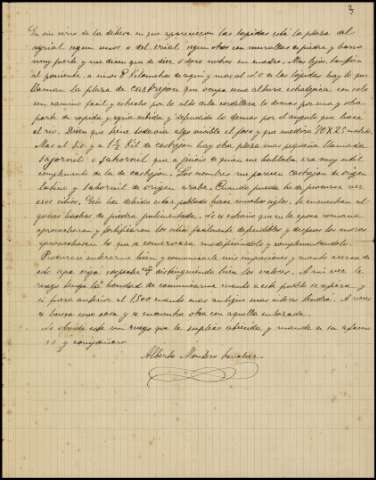 3
En un cerro de la dehesa en que aparecieron las lapidas está la plaza del
segun unos o del segun otros con murallas de piedra y barro
muy fuerte y me dicen que de diez o doce metros en cuadro. Mas lejos tambien
al poniente, a unos 8 Kilometros de aquí y mas al S.O de las lapidas hay lo que
llaman la plaza de castrejon que ocupa una altura estrategica con solo
un camino facil y estrecho por lo alto de la cordillera lo demas por una y otra
parte de rapida y agria subida y defendido lo demas por el angulo que hace
el rio. Dicen que tiene todavia algo visible el foso y que medirá 70 X 25 metros.
Mas al S.O y a 1½ Kil de castrejon hay otra plaza mas pequeña llamada
Sajornil o Sahornil que a juicio de quien me hablaba era muy util
complemento de la de castrejon. Los nombres me parecen castrejon de origen
latino y Sahornil de origen arabe. Cuando pueda he de procurar ver
esos sitios. Esto ha debido estar poblado hace muchos siglos. Se encuentran al-
gunas hachas de piedra pulimentada. No es extraño que en la epoca romana
aprovecharan y fortificaran los sitios facilmente defendibles y despues los moros
aprovecharan lo que se conservara modificandolo y complementandolo.
Procuren enterarse bien y comunicarle mis impresiones y cuanto acerca de
esto oiga respecto distinguiendo bien los valores. A mi vez le
ruego tenga la bondad de comunicarme cuanto a este pueblo se refiera y
si fuere anterior al 1500 cuanto mas antiguo mas interes tendrá. A veces
se busca una cosa y se encuentra otra con aquella enlazada.
No olvide este ruego que le suplica atienda, y mande a su afecmo
s.s. y compañero
Alberto Montero